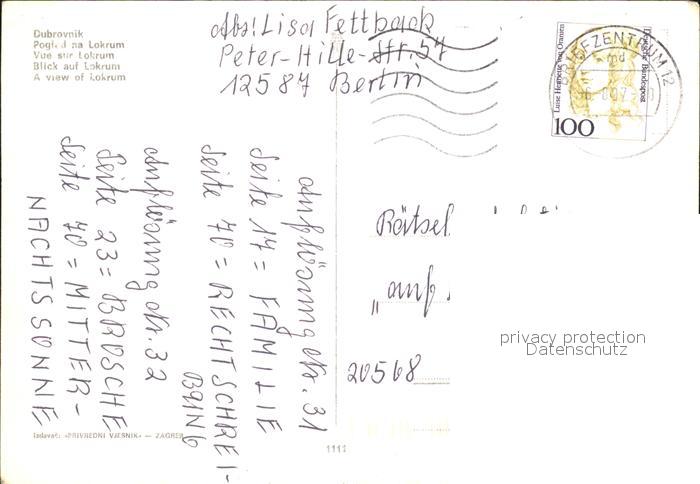 Dubrovnik
Pogled na Lokrum
Vue sur Lokrum
Blick auf Lokrum
A view of Lokrum
Abs: Lisa Fettback
Peter-Hille-Str. 57
12587 Berlin
Luise Henriette von Oranien
Deutsche Bundespost
100
BRIEFZENTRUM 12
Auflösung Nr. 31
Seite 17 = FAMILIE
Seite 70 = RECHTSCHREI-
BUNG
Auflösung Nr. 32
Seite 23 = BROSCHE
Seite 70 = MITTER-
NACHTSSONNE
Rätsel
„auf
20568
privacy protection
Datenschutz
Izdavač: »PRIVREDNI VJESNIK« — ZAGREB
1111